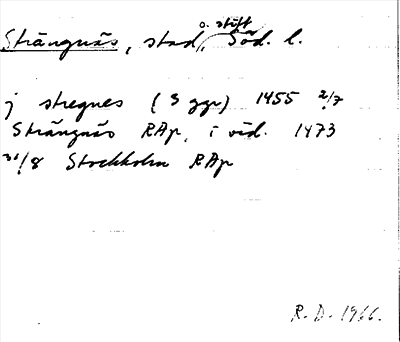 Strängnäs, stad o. stift, Söd. l.
j stregnes (3 ggr) 1455 2/7
Strängnäs RAp, i vid. 1473
30/8 Stockholm RAp
R. D. 1966.